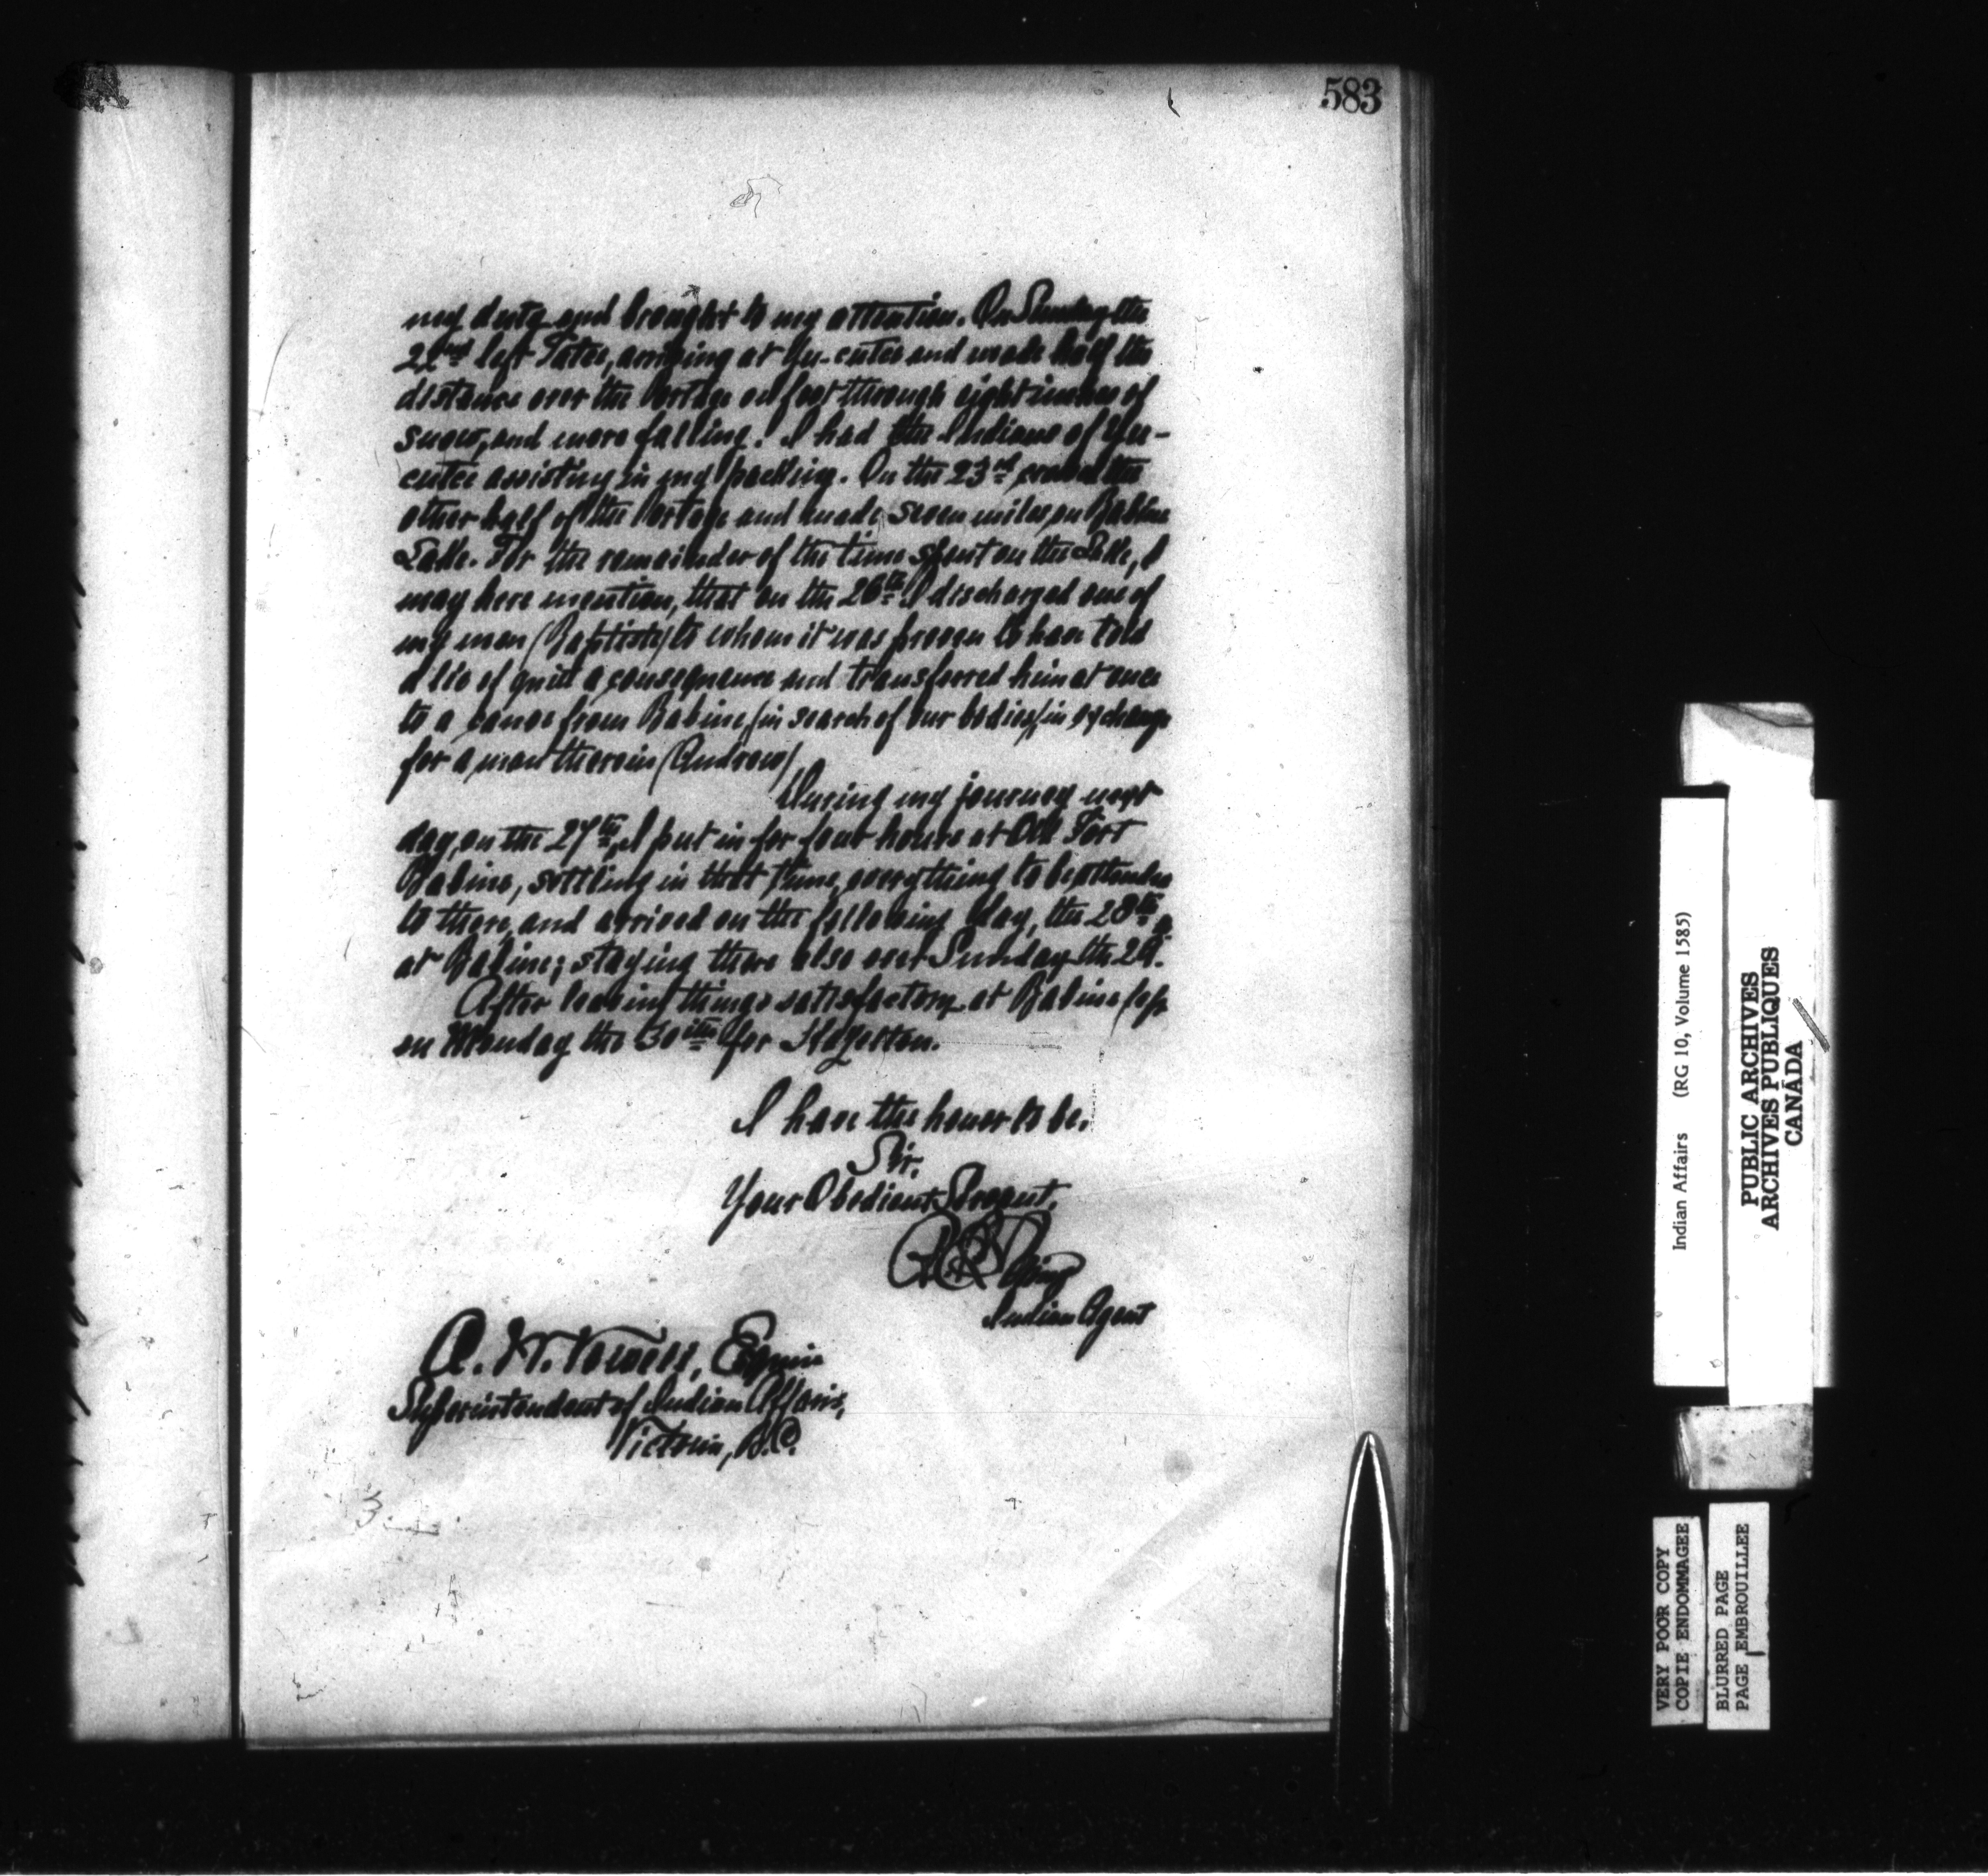 583
my duty and brought to my attention. On Sunday the
22nd left Tatce, arriving at Yu-cutce and made half the
distance over the Portage on foot through eight inches of
snow, and more falling! I had the Indians of Yu-
cutce assisting in my packing. On the 23rd the
other half of the Portage and made seven miles on Babine
Lake. For the remainder of the time spent on the Lake, I
may here mention, that on the 26th I discharged one of
my men (Baptiste) to whom it was proven to have told
a lie of quite a consequence and transferred him at once
to a canoe from Babine (in search of our bodies) in exchange
for a man therein (Andrew).
During my journey next
day, on the 27th, I put in for four hours at Old Fort
Babine, settling in that time, everything to be attended
to there, and arrived on the following day, the 28th,
at Babine; staying there also over Sunday the 29.
After leaving things satisfactory at Babine left
on Monday the 30ith for Hagerton.
I have the honor to be.
Sir,
Your Obedient Servant,
Loring
Indian Agent
A. W. Vowell, Esquire
Superintendent of Indian Affairs,
Victoria, B.C.
Indian Affairs (RG 10, Volume 1585)
PUBLIC ARCHIVES
ARCHIVES PUBLIQUES
CANADA
VERY POOR COPY
COPIE ENDOMMAGEE
BLURRED PAGE
PAGE EMBROUILLEE